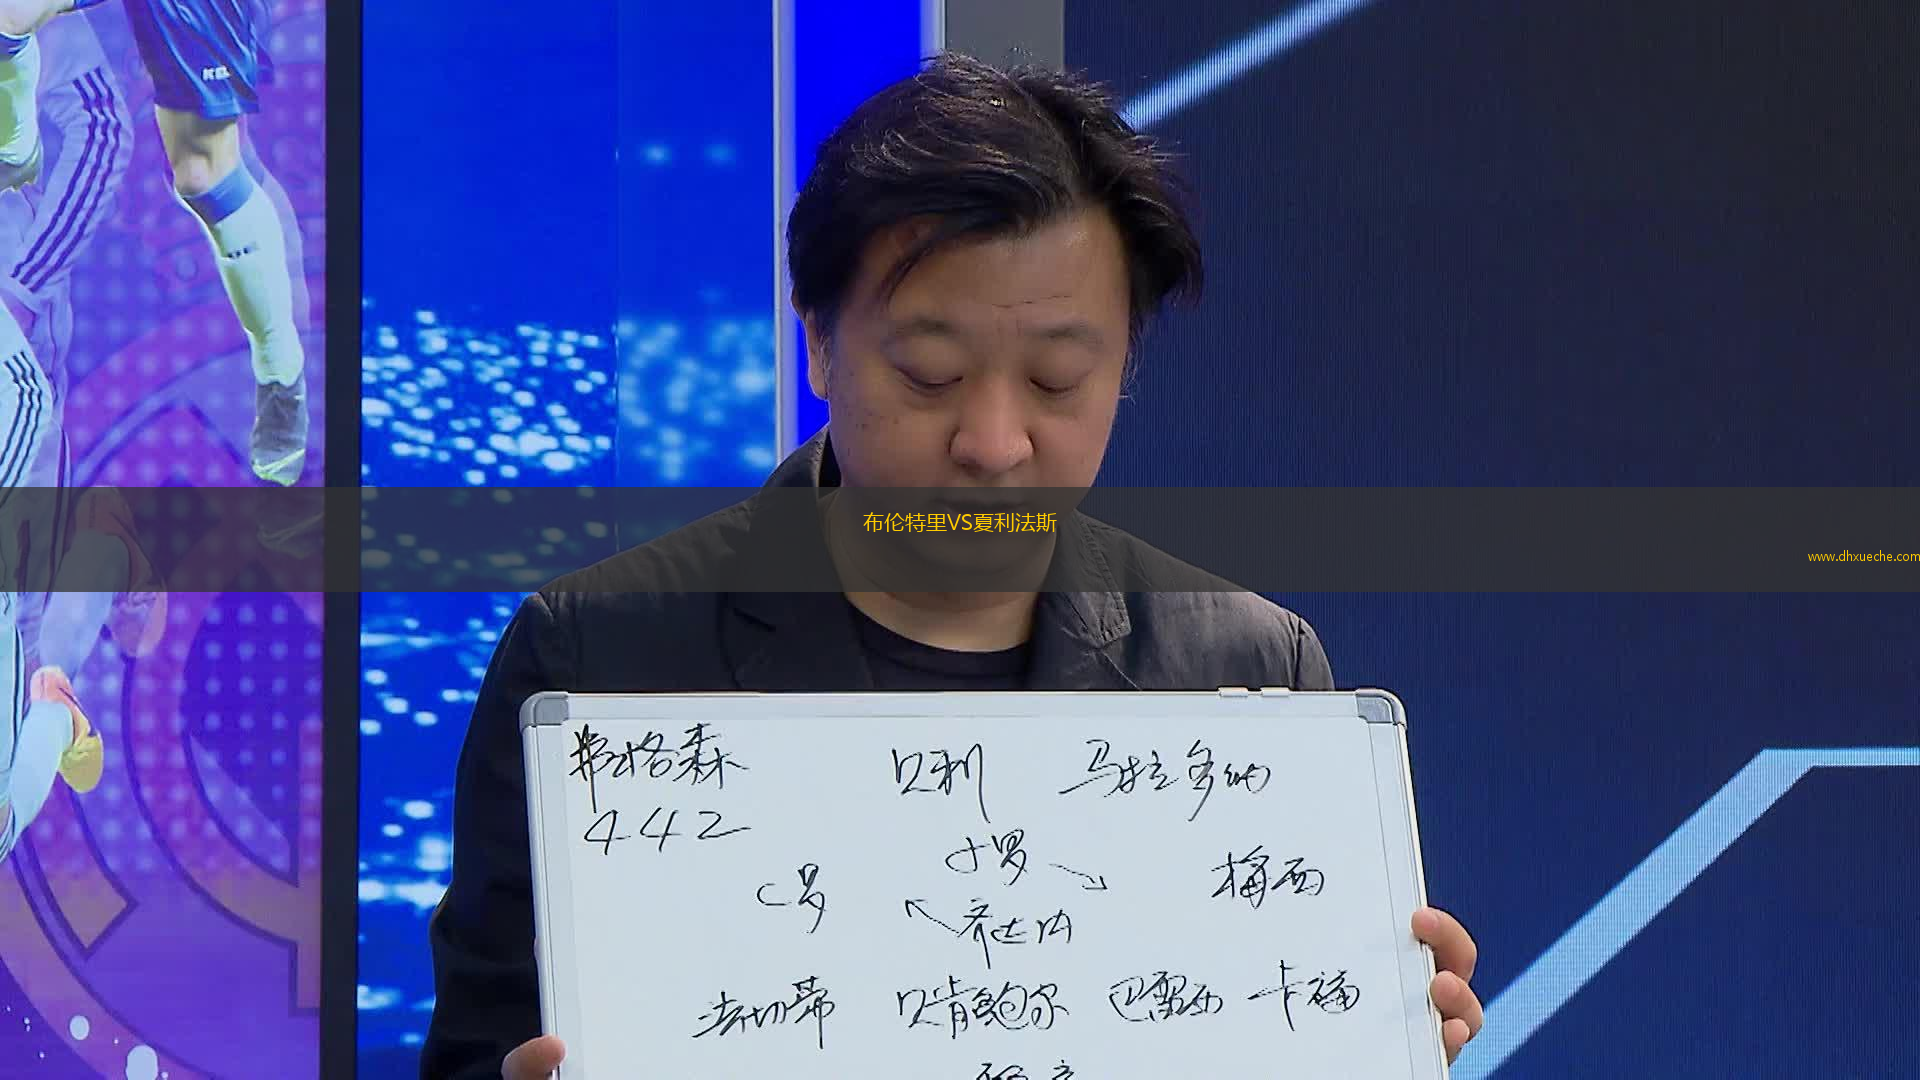 KEL
布伦特里VS夏利法斯
www.dhxueche.com
弗格森 贝利 马拉多纳
442
小罗
C罗 梅西
齐达内
法切蒂 贝肯鲍尔 巴雷西 卡福